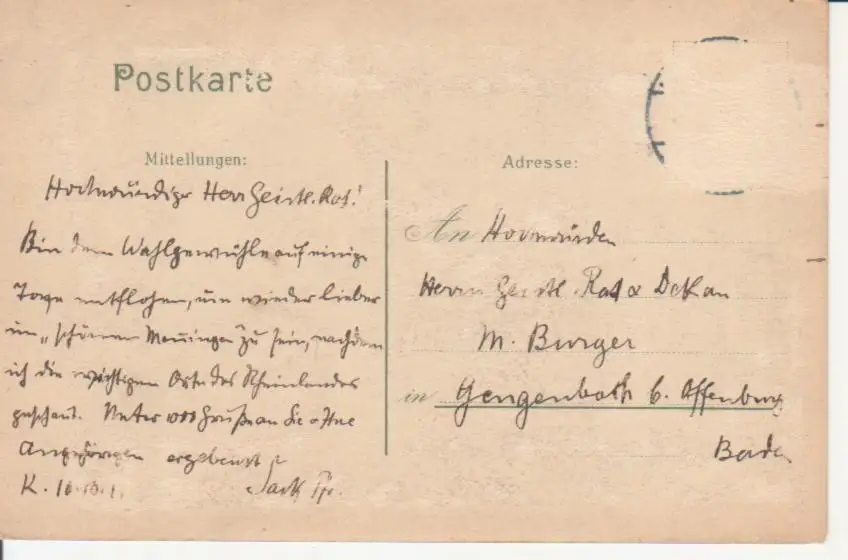 Postkarte
Mitteilungen:
Hochwürdiger Herr Geistl. Rat!
Bin dem Wahlgewühle auf einige
Tage entflohen, um wieder lieber
im "schönen zu sein, nachdem
ich die wichtigen Orte des Rheinlandes
geschaut. Unter Grüße an Sie
Angehörigen ergebenst
K. 10.
Pfr.
Adresse:
An Hochwürden
Herrn Geistl. Rat & Dekan
M. Burger
in Gengenbach b. Offenburg
Baden